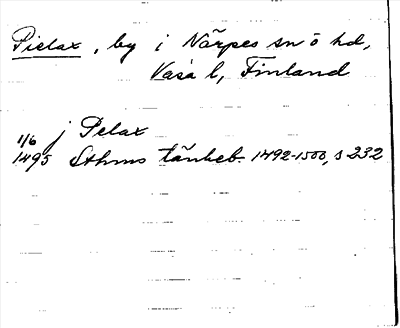 Pielax, by i Närpes sn o hd,
Vasa l, Finland
j Pelax
1/6
1495 Sthms tänkeb. 1492-1500, s 232